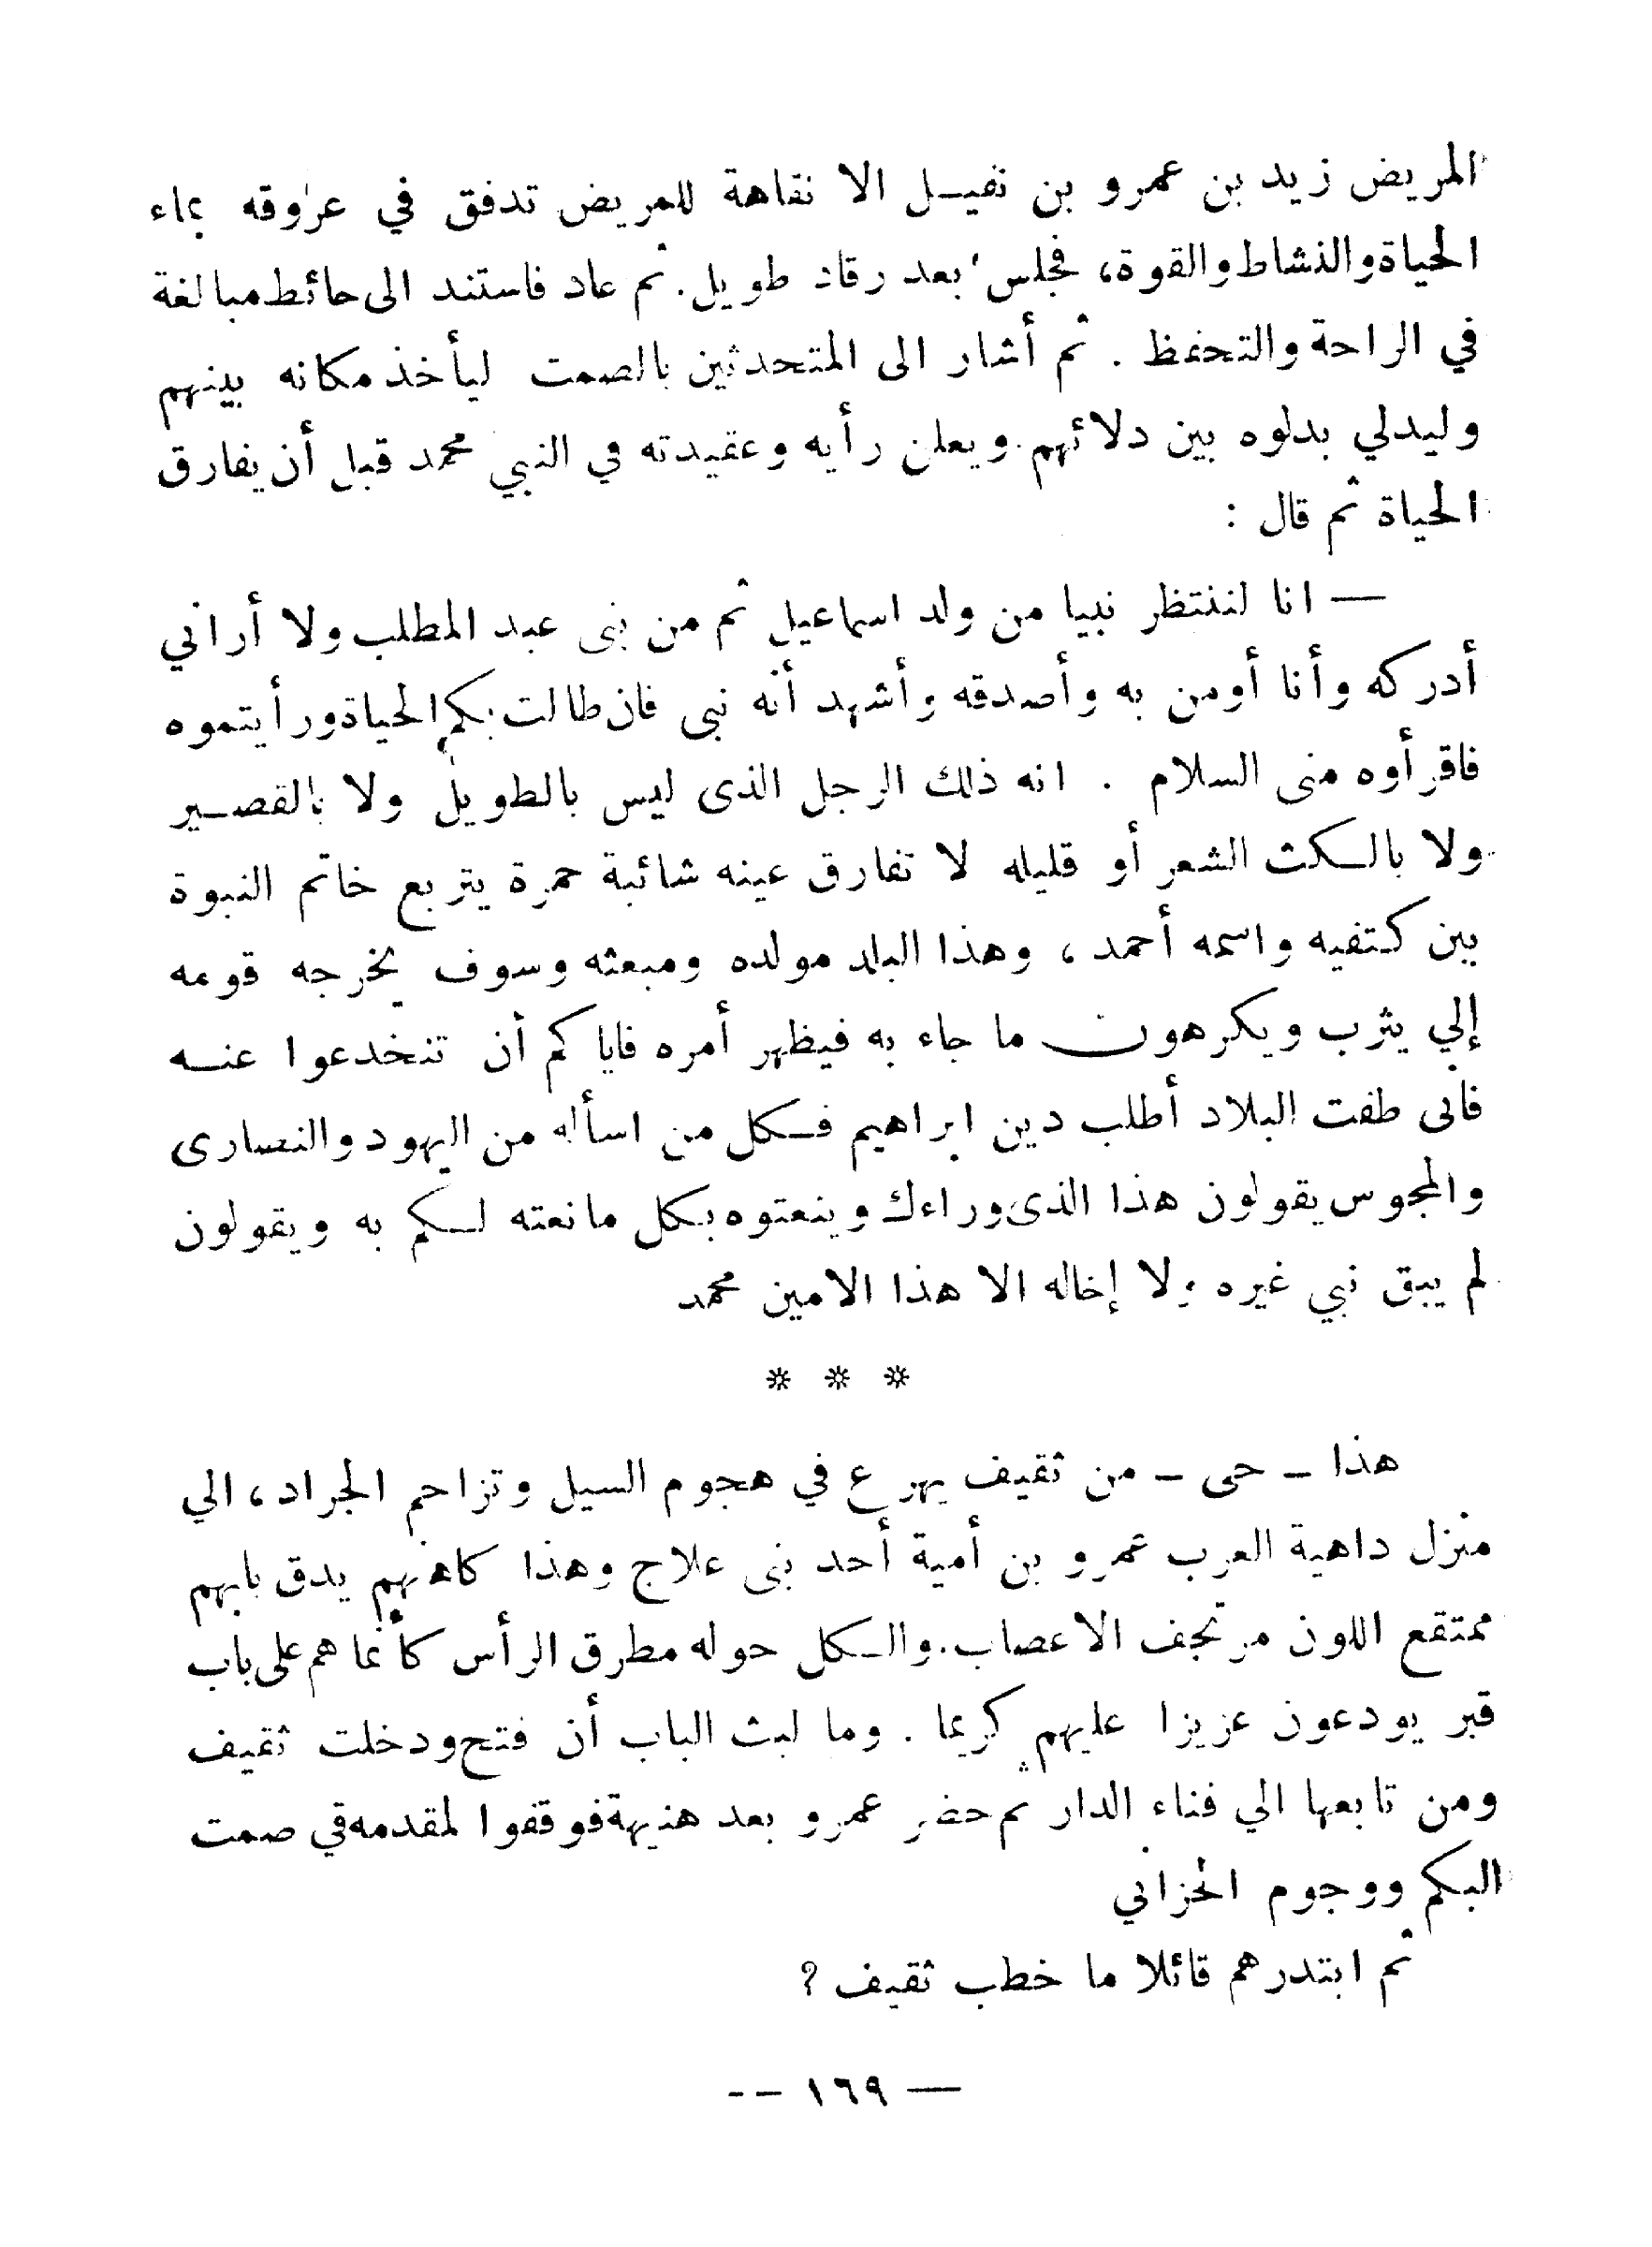 المريض زيد بن عمرو بن نفيل الا نقاهة للمريض تدفق في عروقه بماء
الحياة والنشاط والقوة، فجلس بعد رقاد طويل. ثم عاد فاستند الى حائط مبالغة
في الراحة والتحفظ . ثم أشار الى المتحدثين بالصمت ليأخذ مكانه بينهم
وليدلي بدلوه بين دلائهم. ويعلن رأيه وعقيدته في النبي محمد قبل أن يفارق
الحياة ثم قال :
— انا لننتظر نبيا من ولد اسماعيل ثم من بنى عبد المطلب ولا أراني
أدركه وأنا أومن به وأصدقه وأشهد أنه نبى فان طالت بكم الحياة ورأيتموه
فاقرأوه منى السلام . انه ذلك الرجل الذى ليس بالطويل ولا بالقصير
ولا بالكث الشعر أو قليله لا تفارق عينه شائبة حمرة يتربع خاتم النبوة
بين كتفيه واسمه أحمد ، وهذا البلد مولده ومبعثه وسوف يخرجه قومه
إلي يثرب ويكرهون ما جاء به فيظهر أمره فاياكم أن تنخدعوا عنه
فانى طفت البلاد أطلب دين ابراهيم فكل من اسأله من اليهود والنصارى
والمجوس يقولون هذا الذى وراءك وينعتوه بكل ما نعته لكم به ويقولون
لم يبق نبي غيره ولا إخاله الا هذا الامين محمد
* * *
هذا – حى – من ثقيف يهرع في هجوم السيل وتزاحم الجراد، الي
منزل داهية العرب عمرو بن أمية أحد بنى علاج وهذا كاهنهم يدق بابهم
ممتقع اللون مرتجف الاعصاب. والكل حوله مطرق الرأس كأنما هم على باب
قبر يودعون عزيزا عليهم كريما . وما لبث الباب أن فتح ودخلت ثقيف
ومن تابعها الي فناء الدار ثم حضر عمرو بعد هنيهة فوقفوا لمقدمه في صمت
البكم ووجوم الخزاني
ثم ابتدرهم قائلا ما خطب ثقيف ؟
— ١٦٩ --